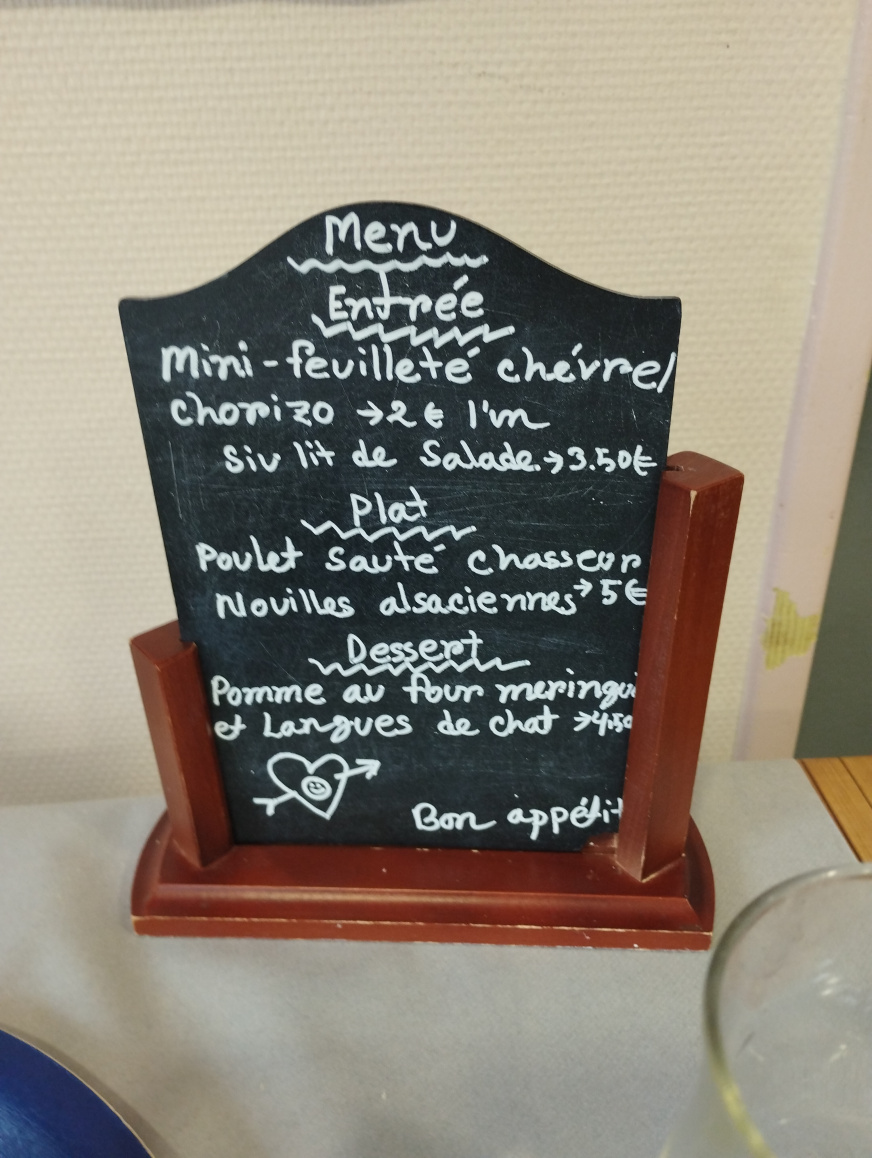 Menu
Entrée
Mini-feuilleté chévre/
chorizo →2€ l'un
Sur lit de Salade.→3.50€
Plat
Poulet sauté chasseur
Nouilles alsaciennes→5€
Dessert
Pomme au four
et Langues de chat →4.50
Bon appétit